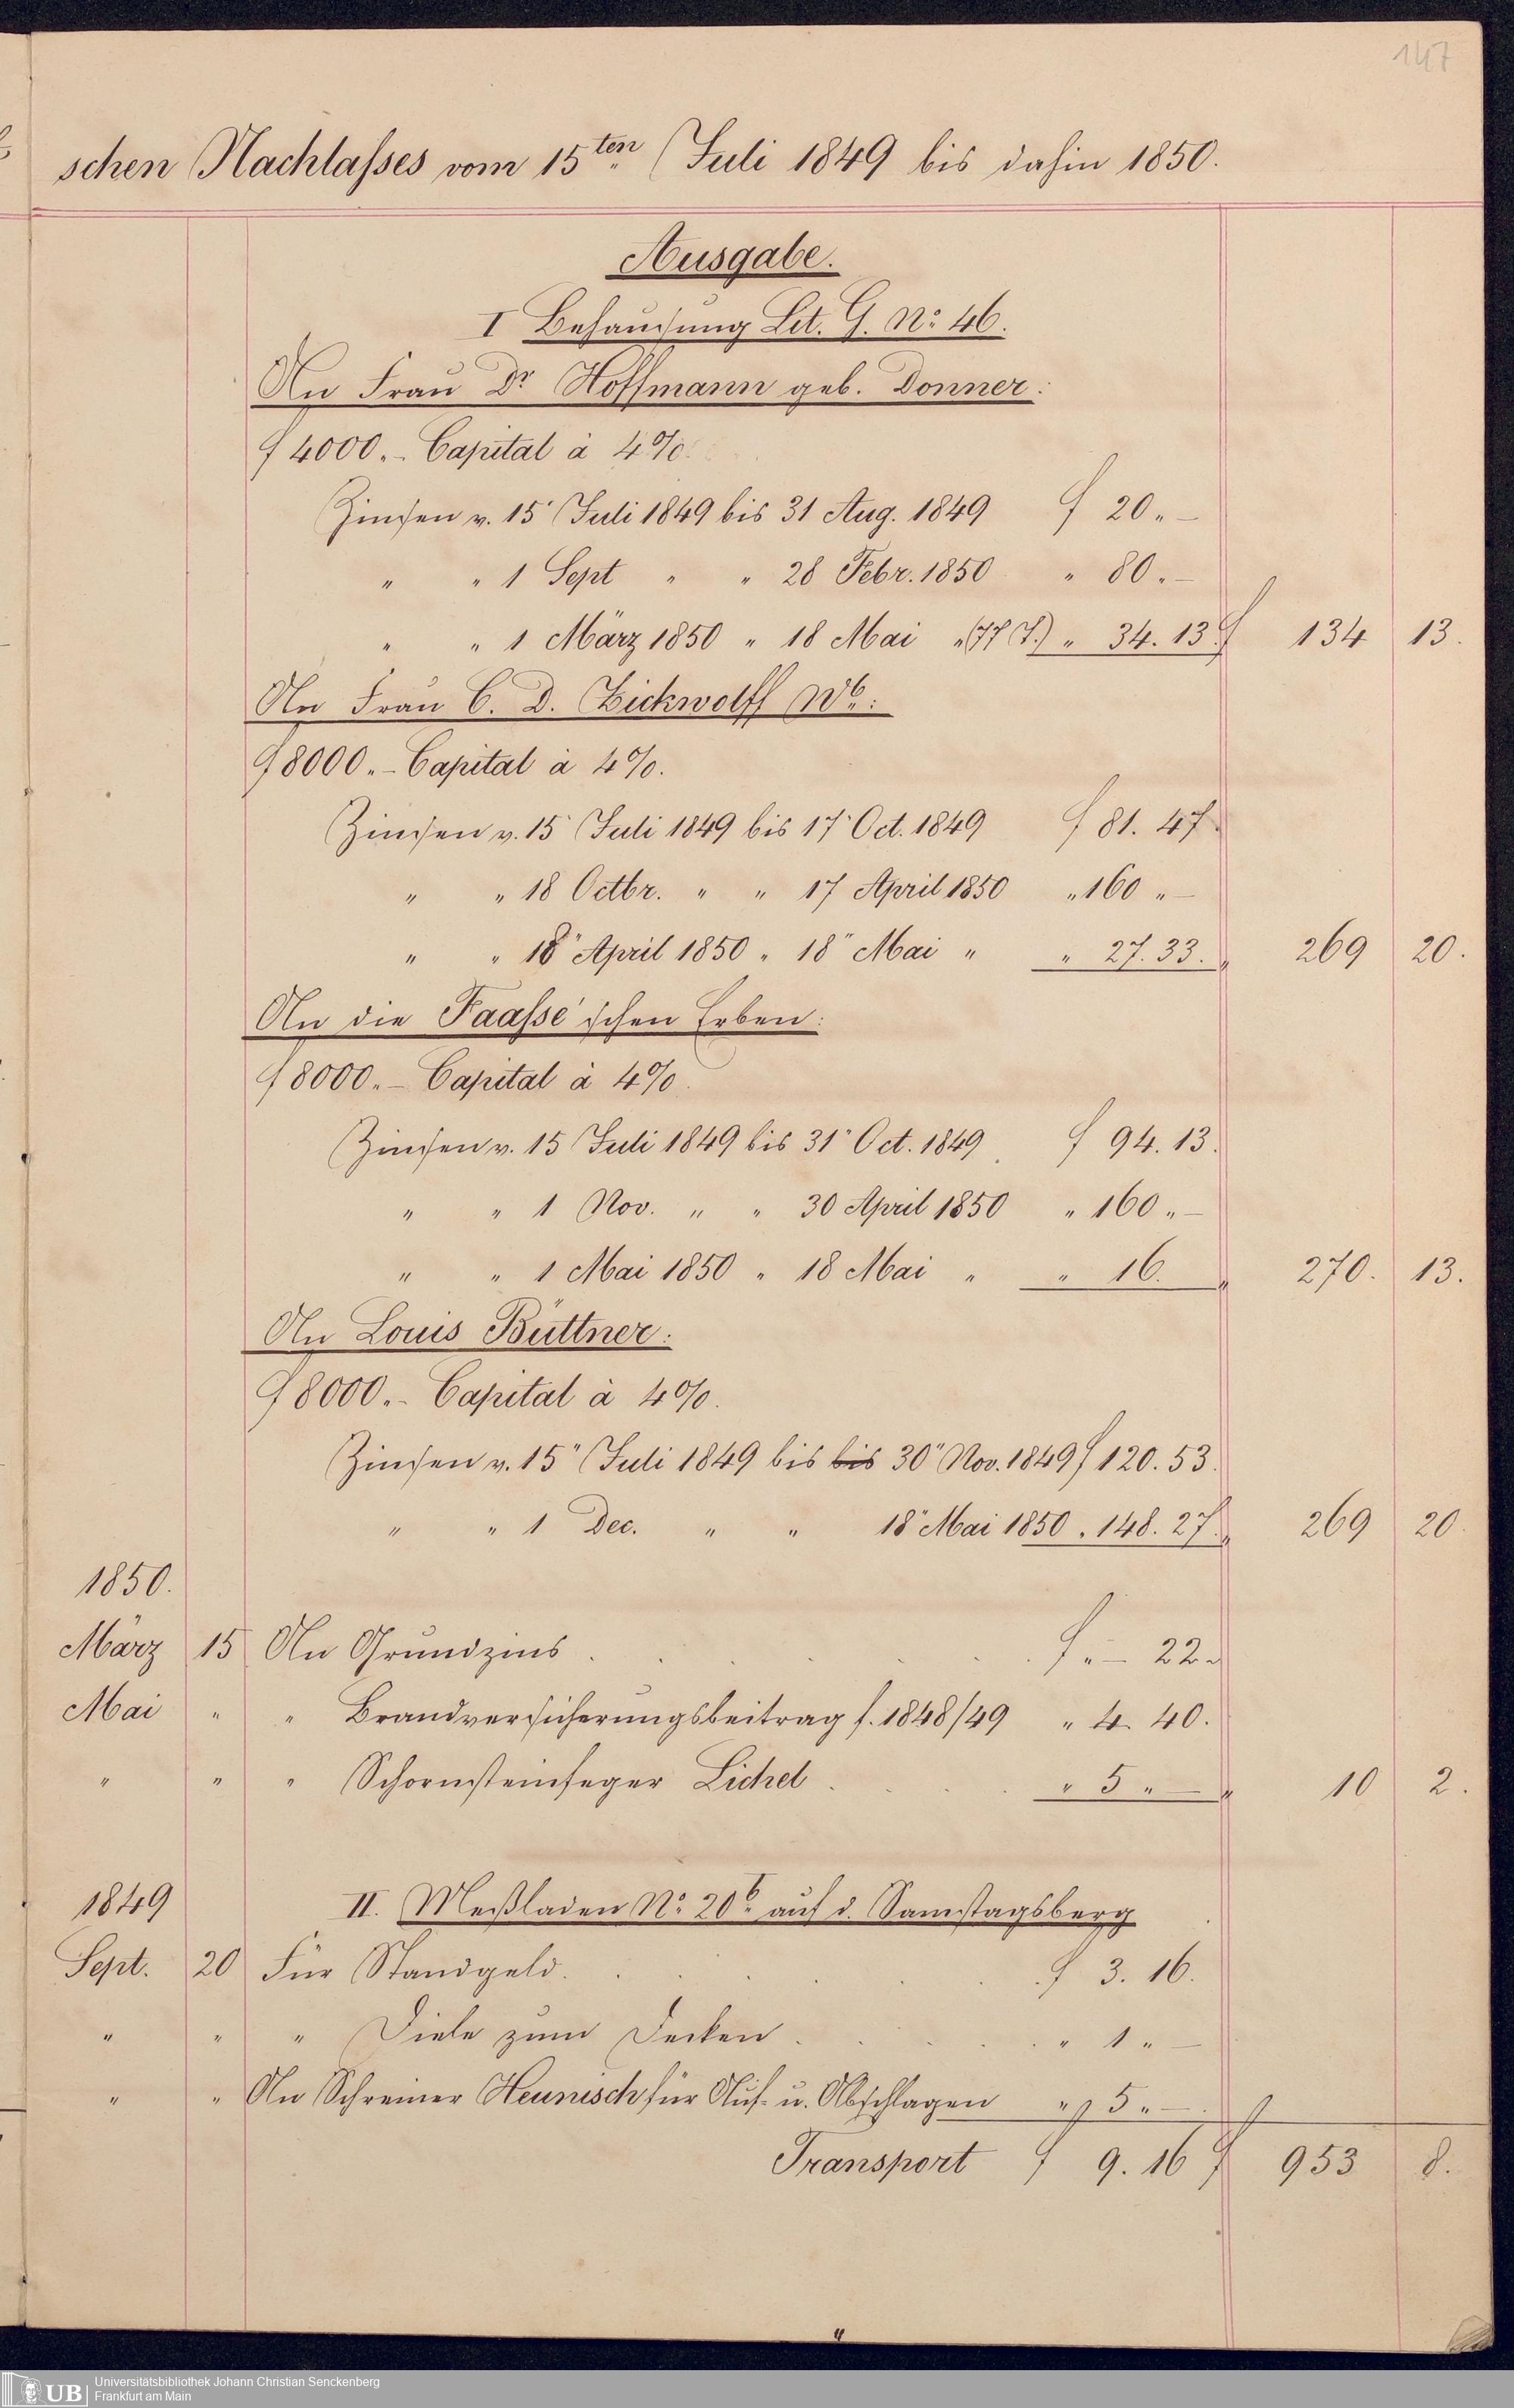 147
schen Nachlasses vom 15ten Juli 1849 bis dahin 1850.
Ausgabe.
I Behausung Lit. G. No 46.
An Frau Dr Hoffmann geb. Donner:
f 4000.- Capital à 4%.
Zinsen v. 15 Juli 1849 bis 31 Aug. 1849 f 20 " —
" " 1 Sept " " 28 Febr. 1850 " 80 " —
" " 1 März 1850 " 18 Mai " (77 T.) " 34. 13. f 134 13.
An Frau C. D. Zickwolff Wb:
f 8000.- Capital à 4%.
Zinsen v. 15 Juli 1849 bis 17 Oct. 1849 f 81. 47.
" " 18 Octbr. " " 17 April 1850 " 160 " —
" " 18" April 1850 " 18" Mai " " 27. 33. " 269 20.
An die Faasse'schen Erben:
f 8000.- Capital à 4%.
Zinsen v. 15 Juli 1849 bis 31" Oct. 1849 f 94. 13.
" " 1 Nov. " " 30 April 1850 " 160 " —
" " 1 Mai 1850 " 18 Mai " " 16. " 270. 13.
An Louis Büttner:
f 8000.- Capital à 4%.
Zinsen v. 15" Juli 1849 bis bis 30" Nov. 1849 f 120. 53.
" " 1 Dec. " " 18" Mai 1850 " 148. 27. " 269 20.
1850.
März 15 An Grundzins . . . . . f " — 22 "
Mai " " Brandversicherungsbeitrag f. 1848/49 " 4. 40.
" " " Schornsteinfeger Lichel . . . " 5 " — " 10 2.
1849 II. Meßladen No 20b auf d. Samstagsberg
Sept. 20 Für Standgeld . . . . . f 3. 16.
" " " Diele zum Decken . . . . " 1 " —
" " An Schreiner Heunisch für Auf- u. Abschlagen " 5 " —
Transport f 9. 16 f 953 8.
UB Universitätsbibliothek Johann Christian Senckenberg
Frankfurt am Main